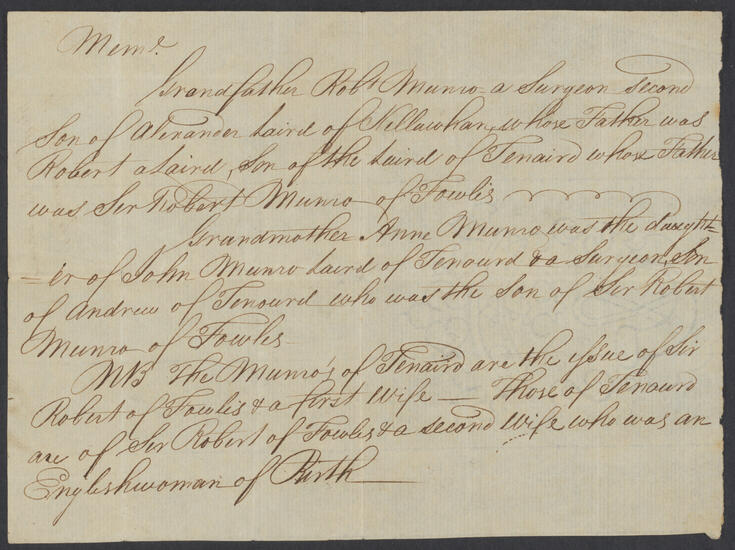 Memd.
Grandfather Robt. Munro a Surgeon second
Son of Alexander Laird of Killawhan, whose Father was
Robert a Laird, Son of the Laird of Tenaird whose Father
was Sir Robert Munro of Fowlis
Grandmother Anne Munro was the daught=
=er of John Munro Laird of Tenourd & a Surgeon, Son
of Andrew of Tenourd who was the Son of Sir Robert
Munro of Fowles
NB The Munro's of Tenaird are the issue of Sir
Robert of Fowlis & a first Wife — Those of Tenaurd
are of Sir Robert of Fowles & a second Wife who was an
Englishwoman of Birth